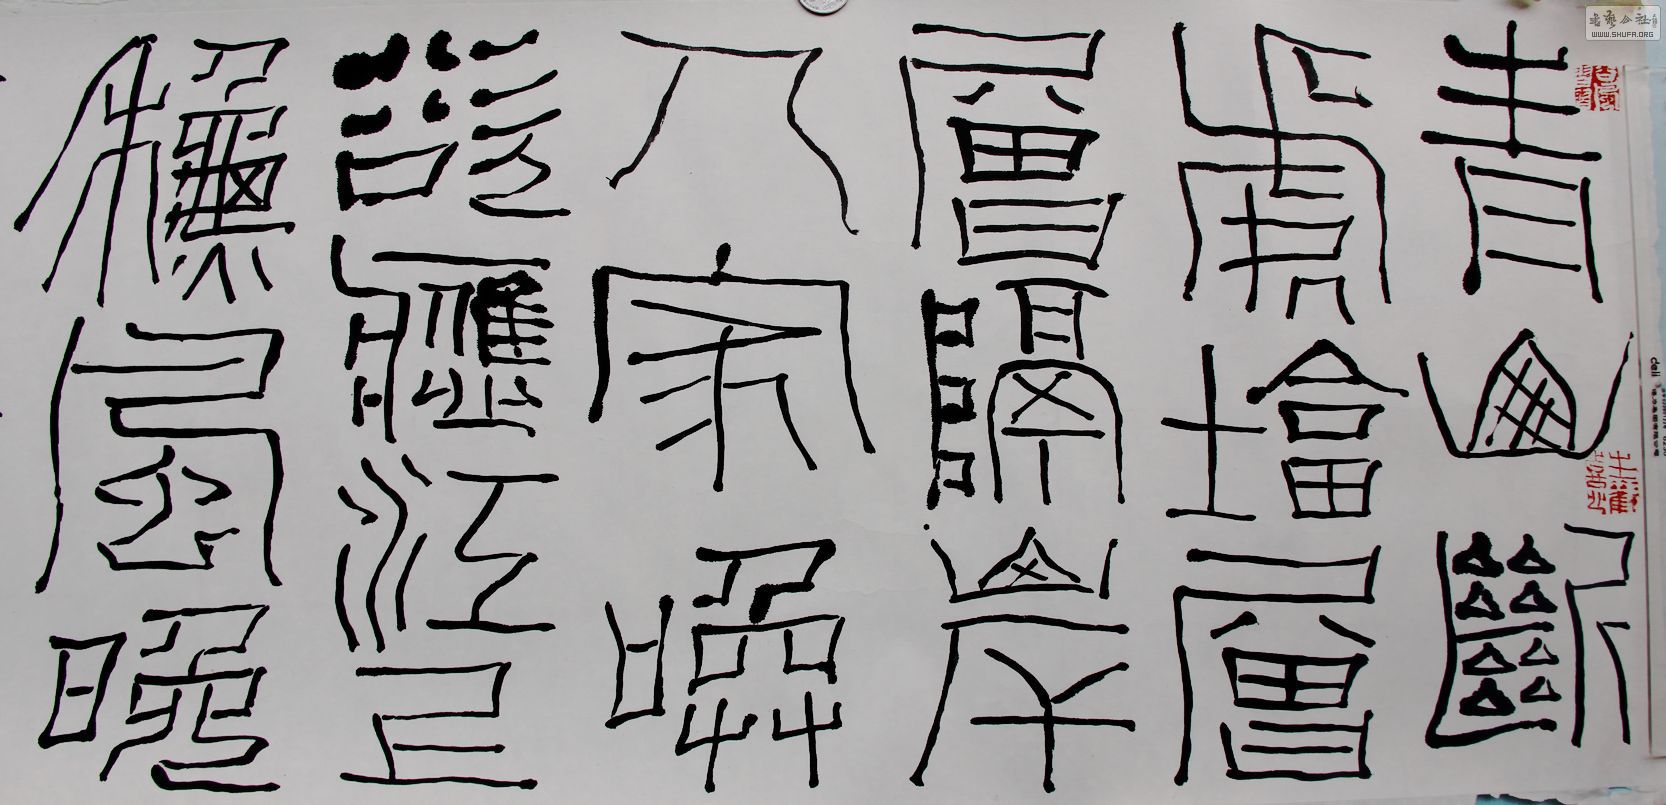 青山斷
處塔層
層隔岸
人家喚
欲應江上
秋風晚
WWW.SHUFA.ORG
deli